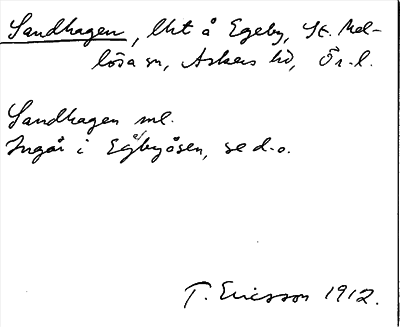 Sandhagen, lht å Egeby, St. Mel-
lösa sn, Askers hd, Ör. l.
Sandhagen ml.
Ingår i Egbyåsen, se d.o.
T. Ericsson 1912.